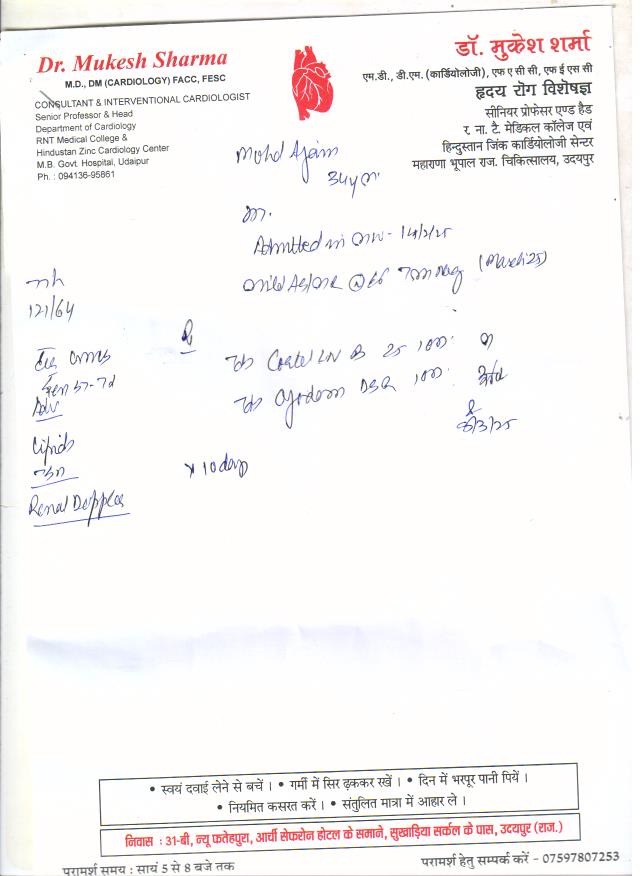 Dr. Mukesh Sharma
M.D., DM (CARDIOLOGY) FACC, FESC
CONSULTANT & INTERVENTIONAL CARDIOLOGIST
Senior Professor & Head
Department of Cardiology
RNT Medical College &
Hindustan Zinc Cardiology Center
M.B. Govt. Hospital, Udaipur
Ph. : 094136-95861
डॉ. मुकेश शर्मा
एम.डी., डी.एम. (कार्डियोलॉजी), एफ ए सी सी, एफ ई एस सी
हृदय रोग विशेषज्ञ
सीनियर प्रोफेसर एण्ड हैड
र. ना. टै. मेडिकल कॉलेज एवं
हिन्दुस्तान जिंक कार्डियोलॉजी सेन्टर
महाराणा भूपाल राज. चिकित्सालय, उदयपुर
Mohd Ajaim
34y
Admitted in
(March 25)
121/64
Adv
Lipids
Renal Doppler
Rx
25
DSR
x 10 days
• स्वयं दवाई लेने से बचें । • गर्मी में सिर ढ़ककर रखें । • दिन में भरपूर पानी पियें ।
• नियमित कसरत करें । • संतुलित मात्रा में आहार ले ।
निवास : 31-बी, न्यू फतेहपुरा, आर्ची सेफरोन होटल के समाने, सुखाड़िया सर्कल के पास, उदयपुर (राज.)
परामर्श समय : सायं 5 से 8 बजे तक
परामर्श हेतु सम्पर्क करें - 07597807253